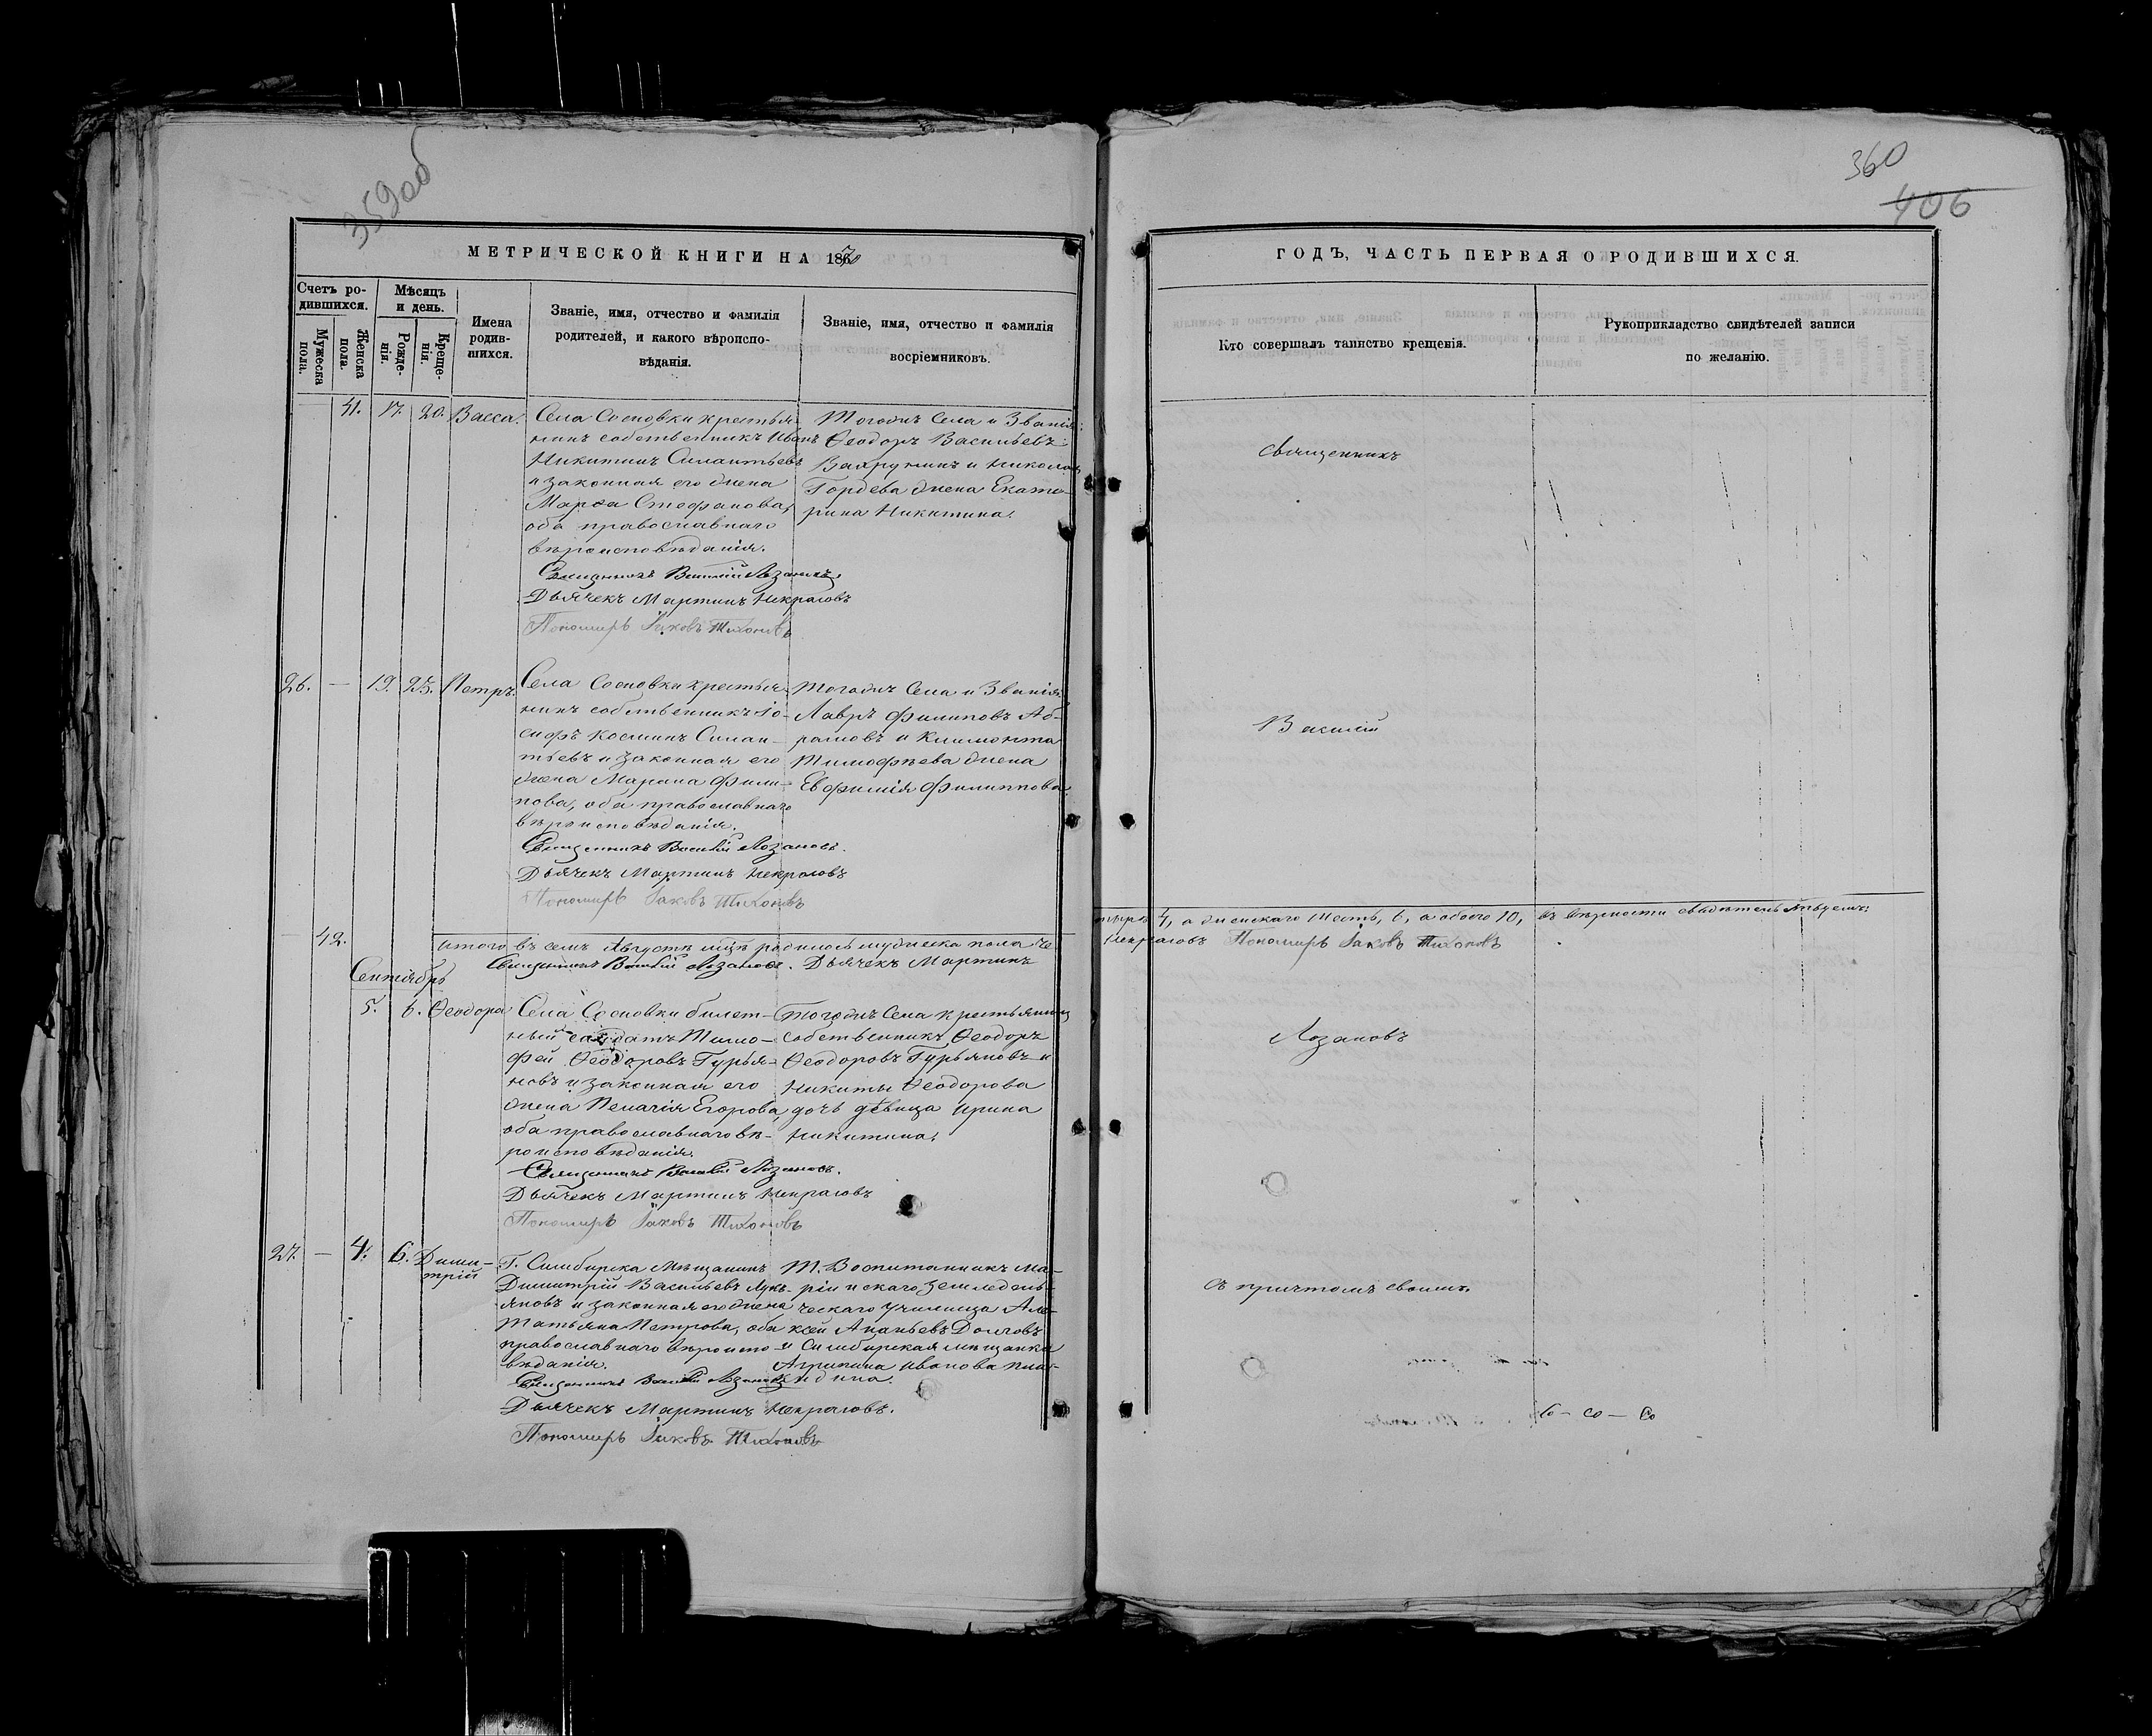 359об
360
406
МЕТРИЧЕСКОЙ КНИГИ НА 1870
Счетъ ро-
дившихся.
Мужеска пола.
Женска пола.
Мѣсяцъ
и день.
Рожде-
нія.
Креще-
нія.
Имена
родив-
шихся.
Званіе, имя, отчество и фамилія
родителей, и какого вѣроиспо-
вѣданія.
Званіе, имя, отчество и фамилія
воспріемниковъ.
41. 17. 20. Васса.
Села Сосновки крестья-
нинъ собственникъ Иванъ
Никитинъ Силантьевъ
и законная его жена
Марѳа Стефанова,
оба православнаго
вѣроисповѣданія.
Священникъ Василій Лозановъ.
Дьячекъ Мартинъ Некрасовъ
Пономарь Іаковъ Тихоновъ
Тогожъ Села и Званія:
Ѳеодоръ Васильевъ
и Николая
Гордѣева жена Екате-
рина Никитина.
26. — 19. 23. Петръ.
Села Сосновки крестья-
нинъ собственникъ Іо-
сифъ Косминъ Силан-
тьевъ и законная его
жена Марина Фили-
пова, оба православнаго
вѣроисповѣданія.
Священникъ Василій Лозановъ.
Дьячекъ Мартинъ Некрасовъ
Пономарь Іаковъ Тихоновъ
Тогожъ Села и Званія
Лавръ Филиповъ Аб-
рамовъ и Климонта
Тимофѣева жена
Евфимія Филиппова.
итого въ семъ Августѣ мцѣ родилось мужеска пола че-
Священникъ Василій Лозановъ. Дьячекъ Мартинъ
Сентябрь
42. 5. 6. Ѳеодора
Села Сосновки билет-
ный солдатъ Тимо-
фей Ѳеодоровъ Гурья-
новъ и законная его
жена Пелагія Егорова,
оба православнаго вѣ-
роисповѣданія.
Священникъ Василій Лозановъ.
Дьячекъ Мартинъ Некрасовъ
Пономарь Іаковъ Тихоновъ
Тогожъ Села крестьянинъ
собственникъ Ѳеодоръ
Ѳеодоровъ Гурьяновъ и
Никиты Ѳеодорова
дочь дѣвица Ирина
Никитина.
27. — 4. 6. Дими-
трій
Г. Симбирска Мѣщанинъ
Димитрій Васильевъ Лукь-
яновъ и законная его жена
Татьяна Петрова, оба
православнаго вѣроиспо-
вѣданія.
Священникъ Василій Лозановъ
Дьячекъ Мартинъ Некрасовъ.
Пономарь Іаковъ Тихоновъ
Т. Воспитанникъ Ма-
ріинскаго Земледель-
ческаго Училища Але-
ксей Ананьевъ Долговъ
и Симбирская мѣщанка
Агрипина Иванова
ГОДЪ, ЧАСТЬ ПЕРВАЯ О РОДИВШИХСЯ.
Кто совершалъ таинство крещенія.
Рукоприкладство свидѣтелей записи
по желанію.
священникъ
Василій
тыре 4, а женскаго шесть, 6, а обоего 10, въ вѣрности свидѣтельствуемъ:
Некрасовъ Пономарь Іаковъ Тихоновъ
Лозановъ
съ причтомъ своимъ.